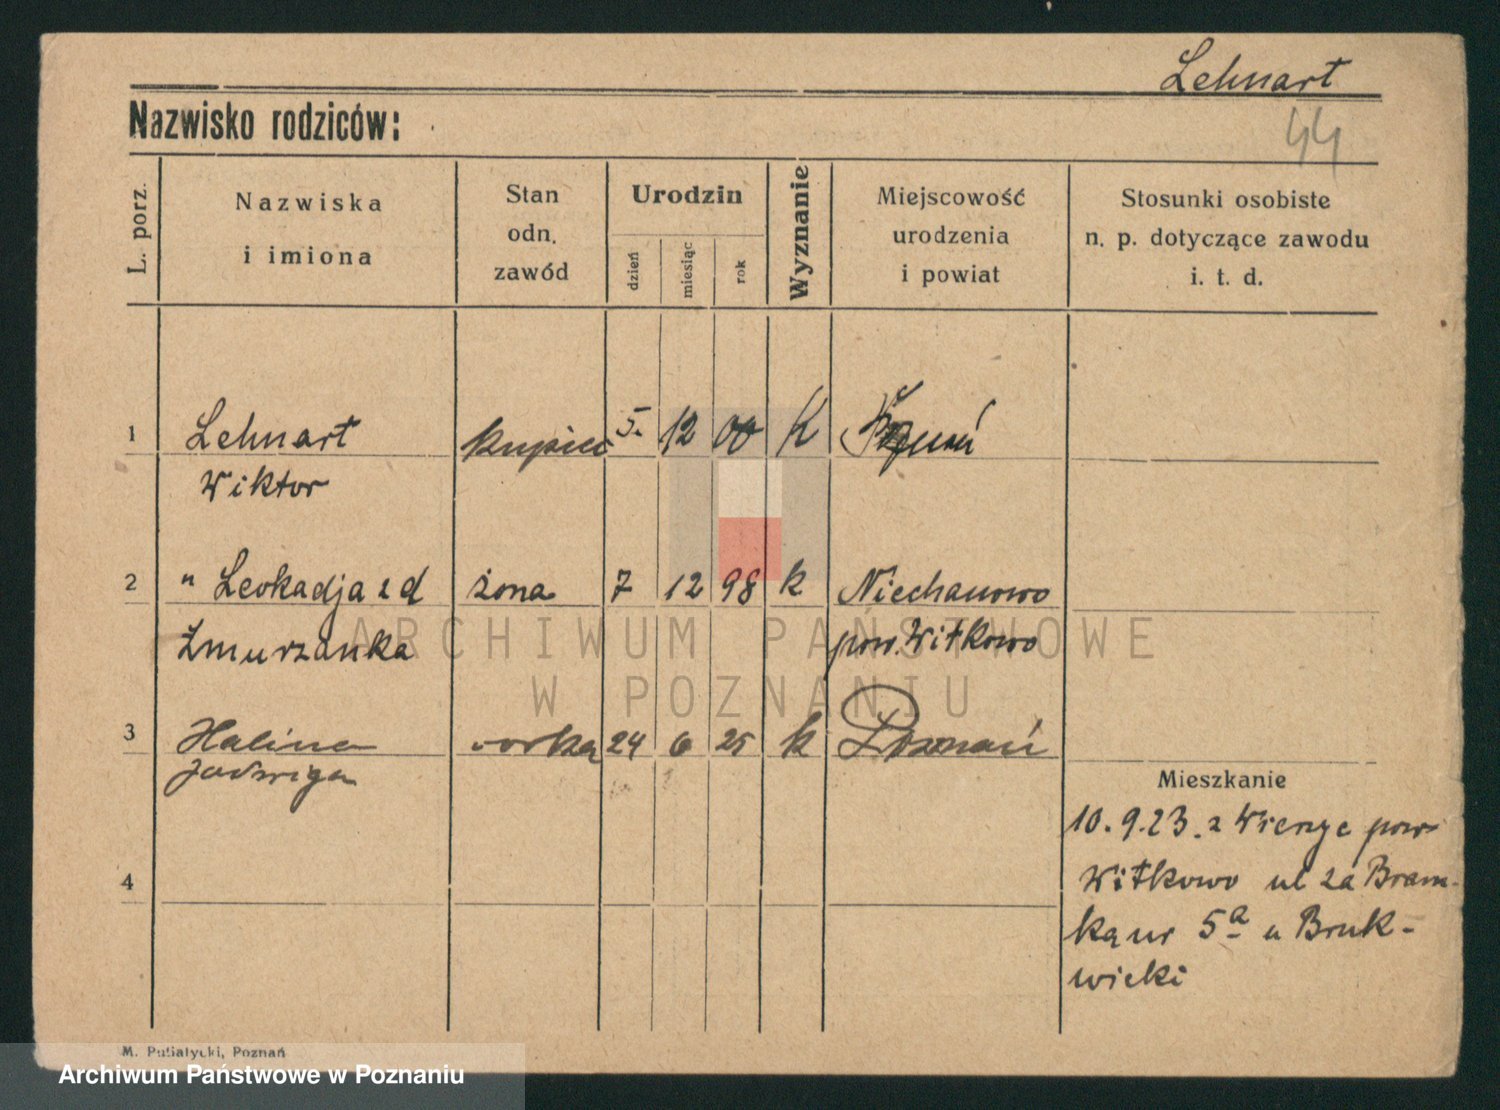 Lehnart
44
Nazwisko rodziców:
L. porz.
Nazwiska
i imiona
Stan
odn.
zawód
Urodzin
dzień
miesiąc
rok
Wyznanie
Miejscowość
urodzenia
i powiat
Stosunki osobiste
n. p. dotyczące zawodu
i. t. d.
1 Lehnart kupiec 5. 12 00 k
Wiktor
2 " Leokadja z d żona 7 12 98 k Niechanowo
Żmurzanka pow. Witkowo
3 Halina córka 24 6 25 k Poznań
Jadwiga
4
Mieszkanie
10.9.23. z pow
Witkowo ul za Bram-
ką nr 5a u Bruk-
wicki
M. Putiatycki, Poznań
ARCHIWUM PAŃSTWOWE
W POZNANIU
Archiwum Państwowe w Poznaniu